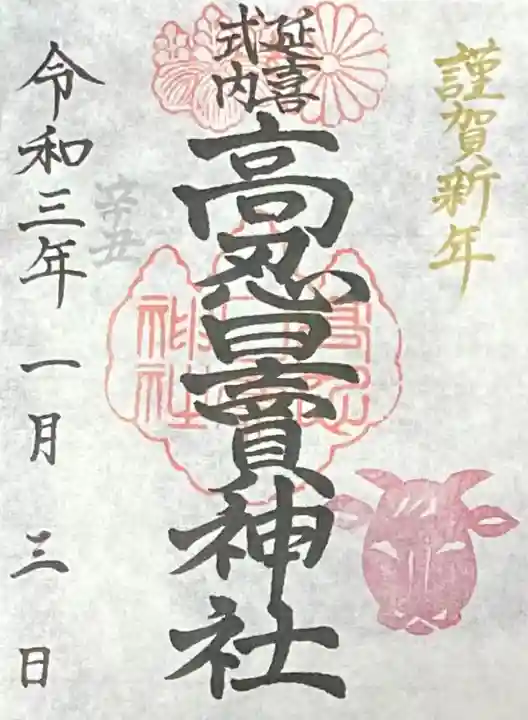 謹賀新年
延喜
式内
高忍日賣神社
辛丑
令和三年一月三日
神社